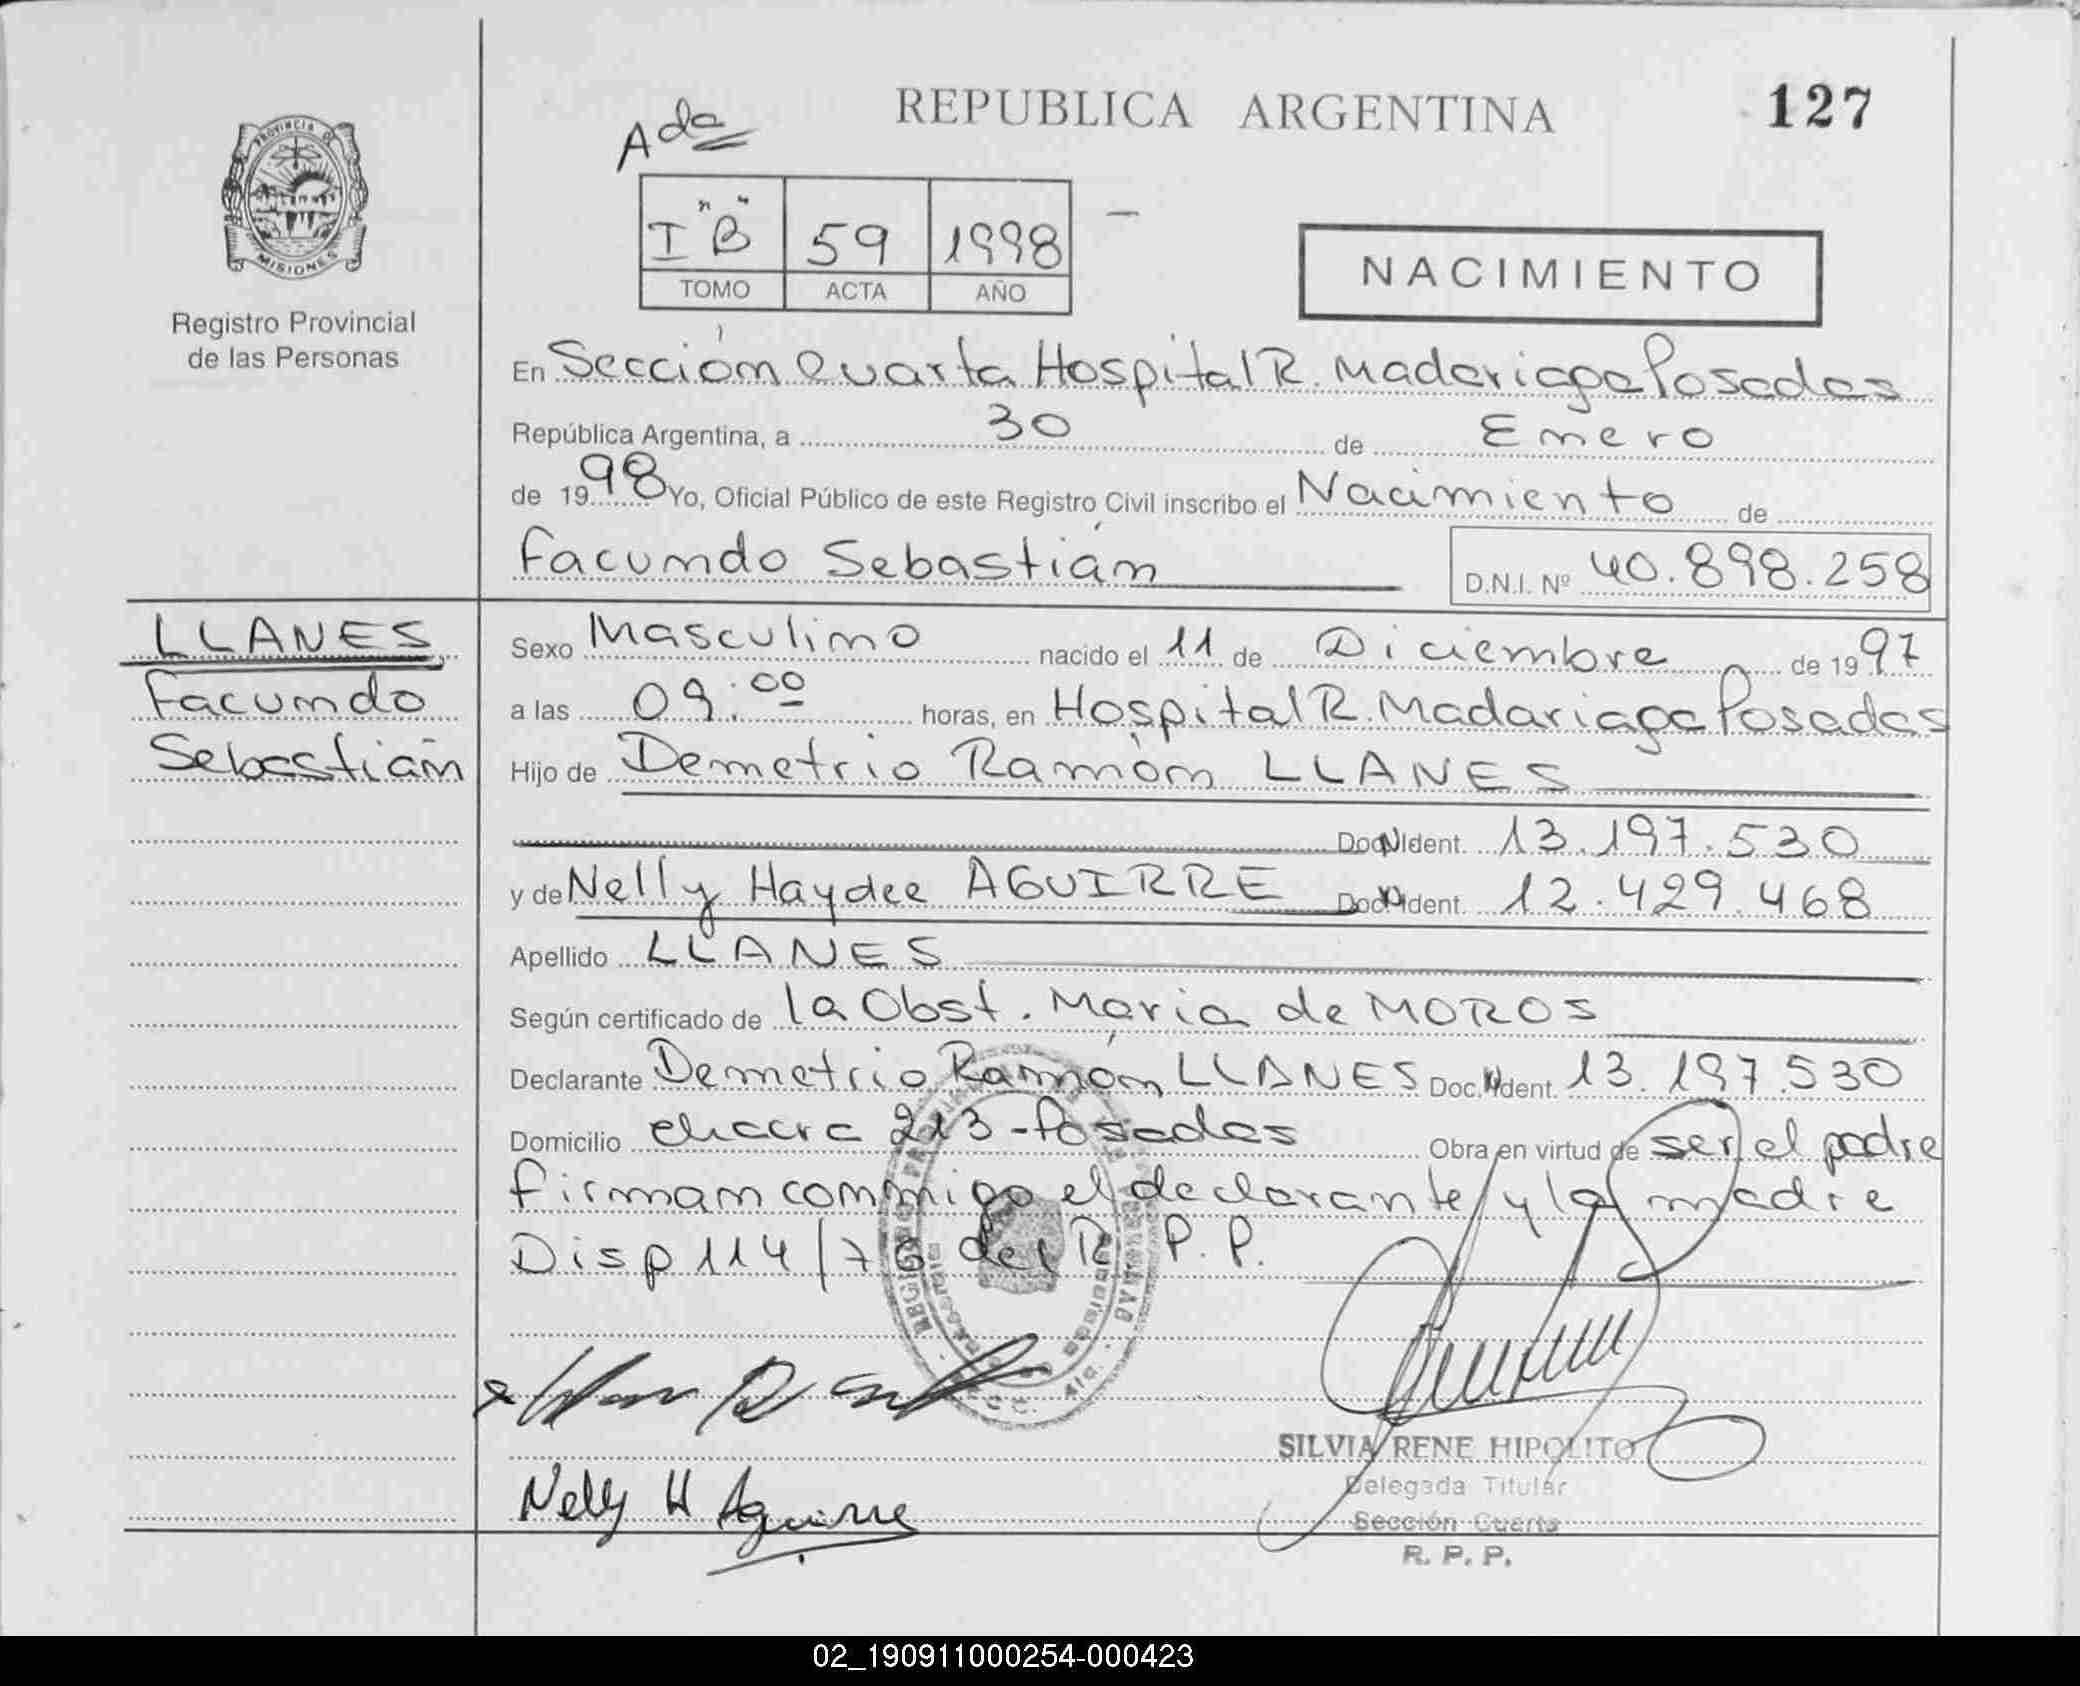 REPUBLICA ARGENTINA
127
Ada
I "B" 59 1998
TOMO ACTA AÑO
NACIMIENTO
PROVINCIA DE
MISIONES
Registro Provincial
de las Personas
En Sección Cuarta Hospital R. Madariaga Posadas
República Argentina, a 30 de Enero
de 1998 Yo, Oficial Público de este Registro Civil inscribo el Nacimiento de
Facundo Sebastián D.N.I. Nº 40.898.258
LLANES
Facundo
Sebastián
Sexo Masculino nacido el 11 de Diciembre de 1997
a las 09:00 horas, en Hospital R. Madariaga Posadas
Hijo de Demetrio Ramón LLANES
Doc. N Ident. 13.197.530
y de Nelly Haydee AGUIRRE Doc. N Ident. 12.429.468
Apellido LLANES
Según certificado de la Obst. Maria de MOROS
Declarante Demetrio Ramón LLANES Doc. N Ident. 13.197.530
Domicilio chacra 213 - Posadas Obra en virtud de ser el padre
firman conmigo el declarante y la madre
Disp 114/76 del R. P. P.
Nelly H Aguirre
SILVIA RENE HIPOLITO
Delegada Titular
Sección Cuarta
R. P. P.
02_190911000254-000423